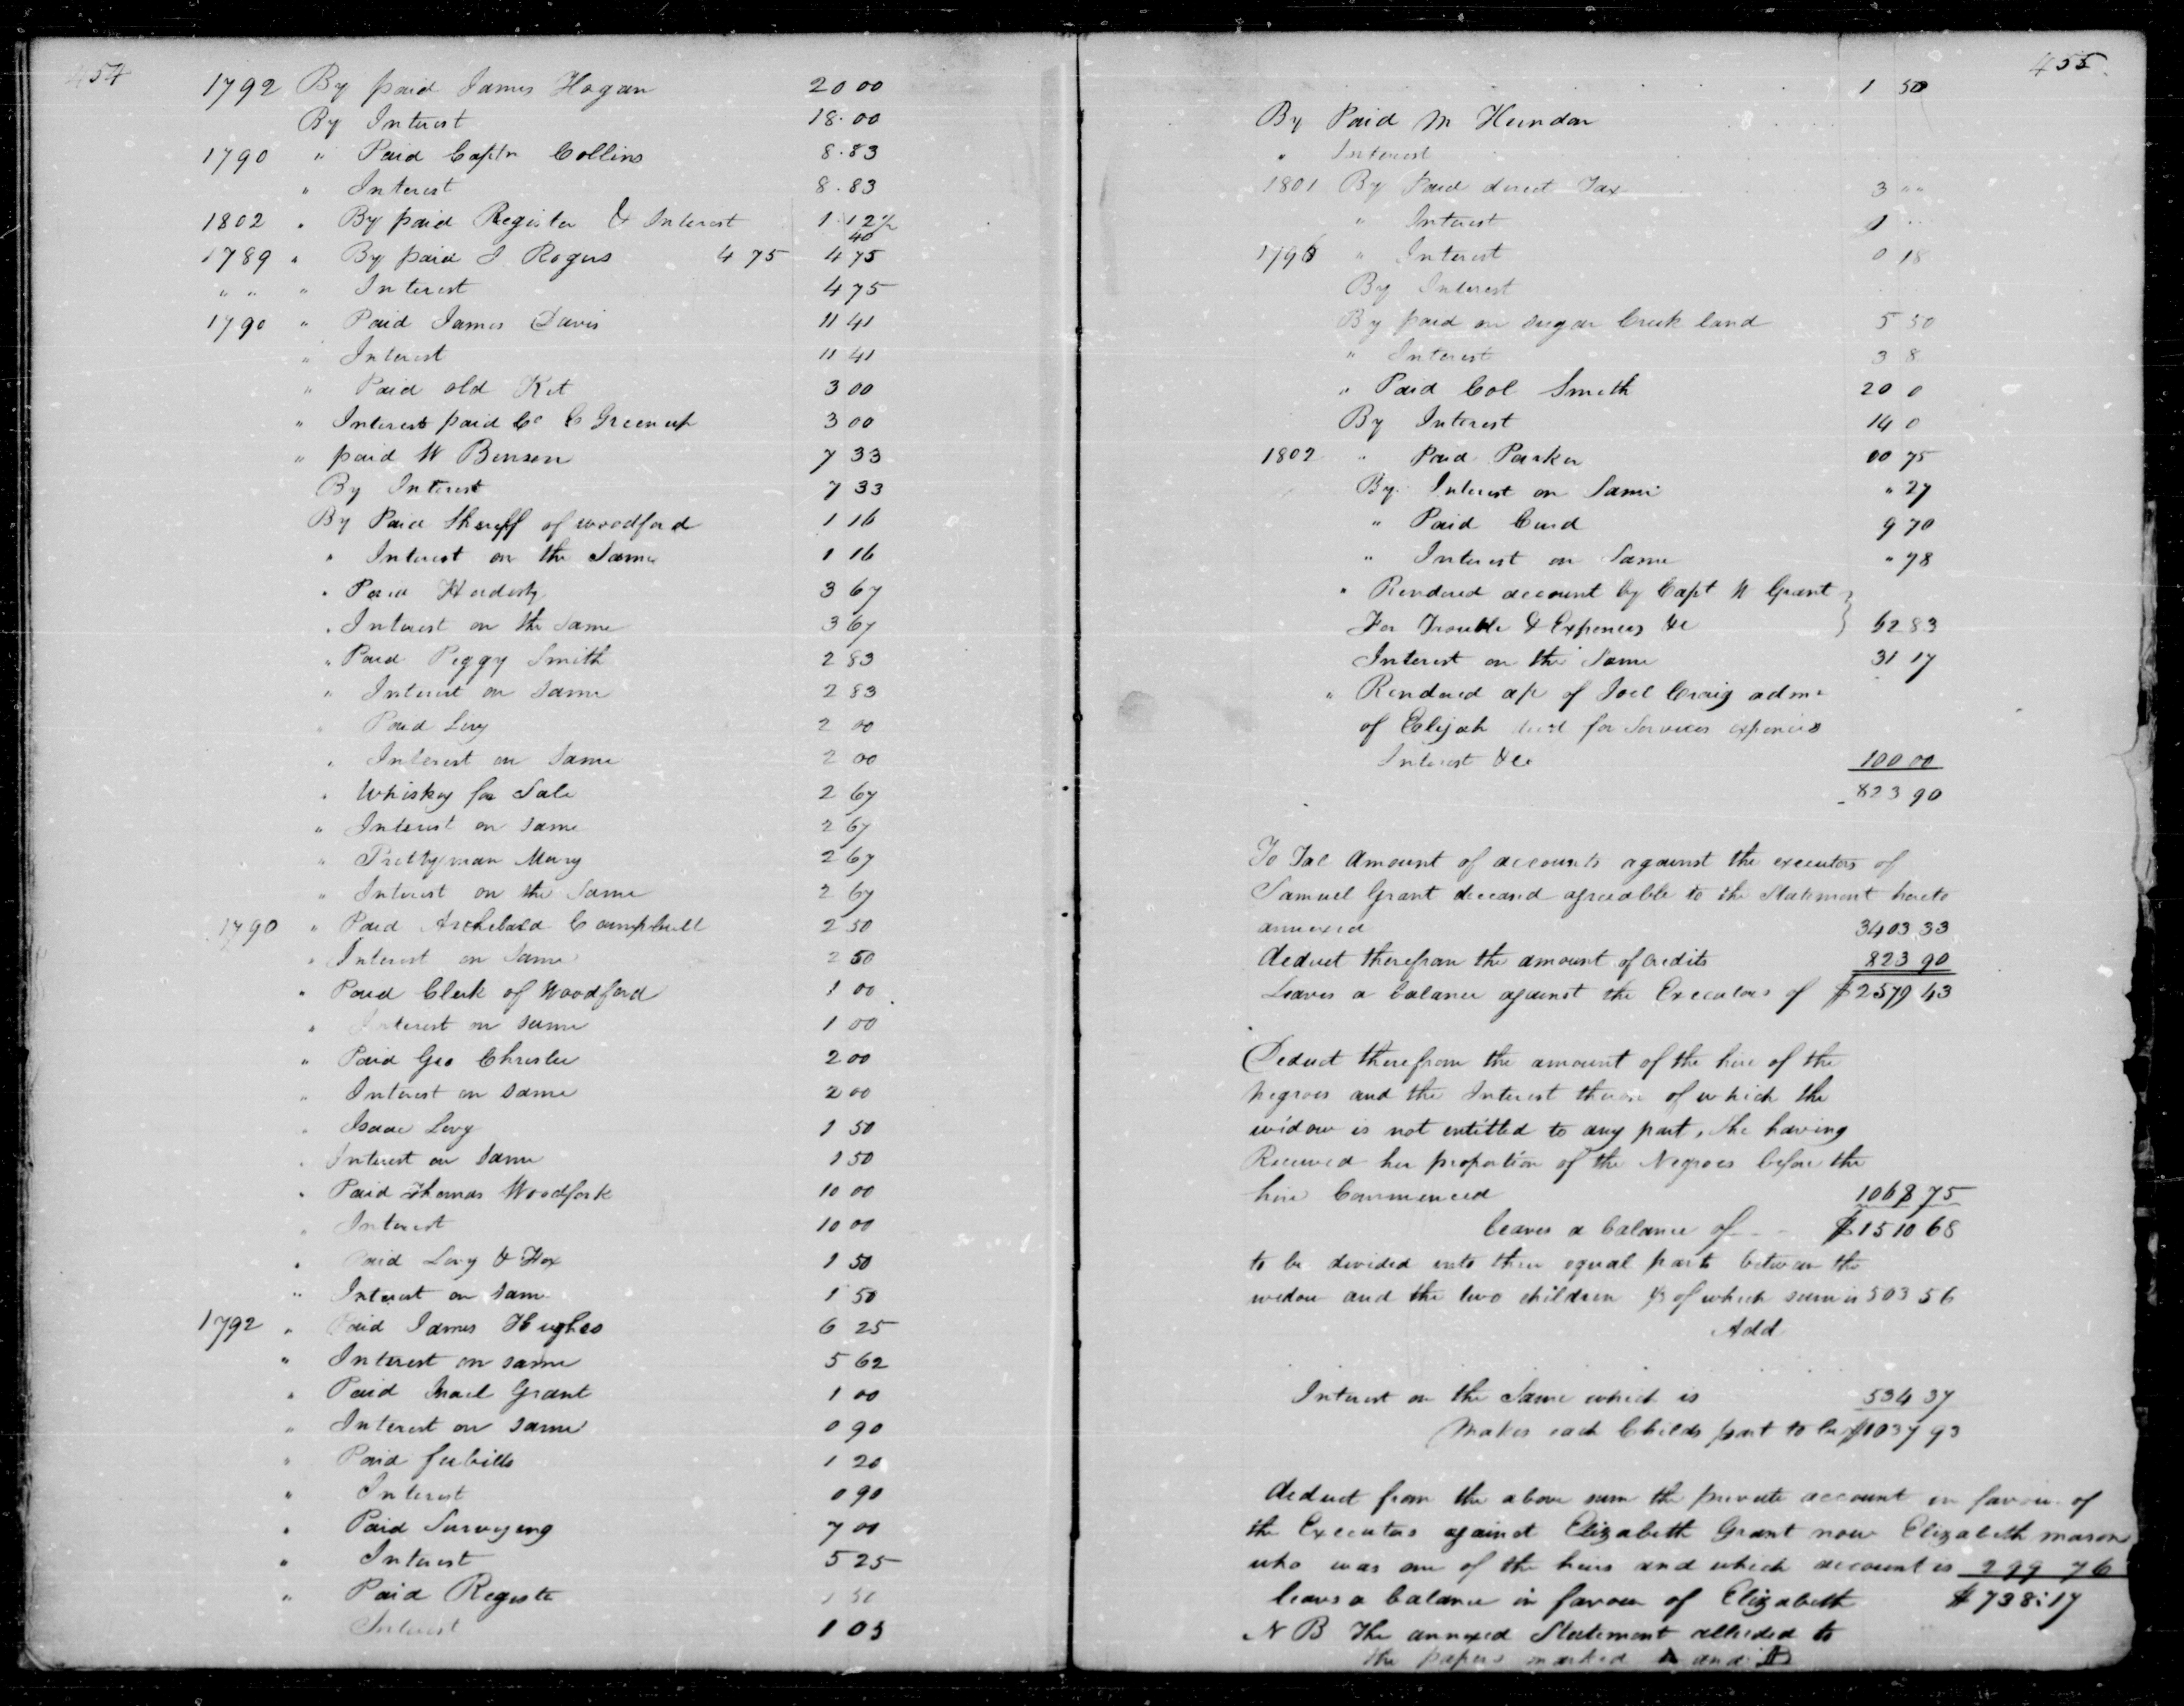 454
1792 By paid James Hogan 20 00
By Interest 18.00
1790 " Paid Captn Collins 8.83
" Interest 8.83
1802 " By paid Register & Interest 1.12½
40
1789 " By paid J Rogers 4 75 4 75
" " " Interest 4 75
1790 " Paid James Davis 11 41
" Interest 11 41
" Paid old Kit 3 00
" Interest paid Co C Greenup 3 00
" paid W Benson 7 33
By Interest 7 33
By Paid Sheriff of woodford 1 16
" Interest on the Same 1 16
" Paid Hardesty 3 67
" Interest on the Same 3 67
" Paid Peggy Smith 2 83
" Interest on Same 2 83
" Paid Levy 2 00
" Interest on Same 2 00
" Whiskey for Sale 2 67
" Interest on same 2 67
" Prettyman Mary 2 67
" Interest on the Same 2 67
1790 " Paid Archebald Campbell 2 50
" Interest on Same 2 50
" Paid Clerk of Woodford 1 00
" Interest on same 1 00
" Paid Geo Christee 2 00
" Interest on same 2 00
" Isaac Levy 1 50
" Interest on same 1 50
" Paid Thomas Woodfork 10 00
" Interest 10 00
" Paid Levy & Fox 1 50
" Interest on same 1 50
1792 " Paid James Hughes 6 25
" Interest on same 5 62
" Paid Grant 1 00
" Interest on same 0 90
" Paid feebills 1 20
" Interest 0 90
" Paid Surveying 7 00
" Interest 5 25
" Paid Registe 1 50
Interest 1 05
455
1 50
By Paid M Herndon
" Interest
1801 By Paid direct Tax 3 " "
" Interest 1
1796 " Interest 0 18
By Interest
By paid on sugar Creek land 5 50
" Interest 3 8
" Paid Col Smith 20 0
By Interest 14 0
1802 " Paid Parker 00 75
By Interest on Same " 27
" Paid Curd 9 70
" Interest on Same " 78
" Rendered account by Capt W Grant
For Trouble & Expences &c } 62 83
Interest on the Same 31 17
" Rendered a/c of Joel Craig adm
of Elijah decd for Services expences
Interest &c 100 00
823 90
To Tal Amount of accounts against the executors of
Samuel Grant deceased agreeable to the Statement hereto
annexed 3403 33
deduct therefrom the amount of credits 823 90
Leaves a balance against the Executors of $2579 43
Deduct therefrom the amount of the hire of the
negroes and the Interest thereon of which the
widow is not entitled to any part, She having
Received her proportion of the Negroes before the
hire Commenced 1068 75
leaves a balance of $1510 68
to be devided into three equal parts between the
widow and the two children ⅓ of which sum is 503 56
Add
Interest on the Same which is 534 37
Makes each Childs part to be $1037 93
deduct from the above sum the private account in favour of
the Executors against Elizabeth Grant now Elizabeth mason
who was one of the heirs and which account is 299 76
leaves a balance in favour of Elizabeth $738:17
N B The annexed Statement alluded to
the papers marked A and B